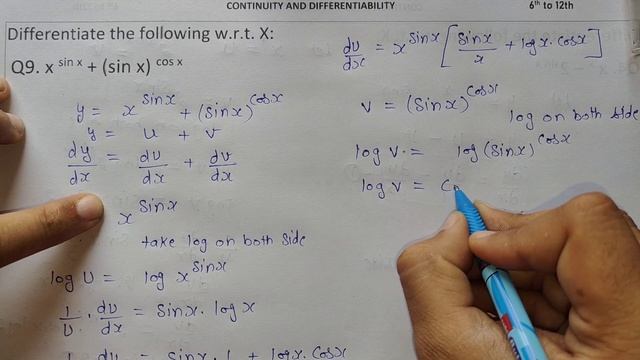 CONTINUITY AND DIFFERENTIABILITY 6th to 12th
Differentiate the following w.r.t. X:
Q9. x sin x + (sin x) cos x
y = x sinx + (sinx) cosx
y = u + v
dy/dx = du/dx + dv/dx
x sinx
take log on both side
log U = log x sinx
1/U . du/dx = sinx. log x
1 du = sinx. 1 + logx. cosx
dU/dx = x sinx [ sinx/x + logx. cosx ]
v = (sinx) cosx
log on both side
log v = log (sinx) cosx
log v = c